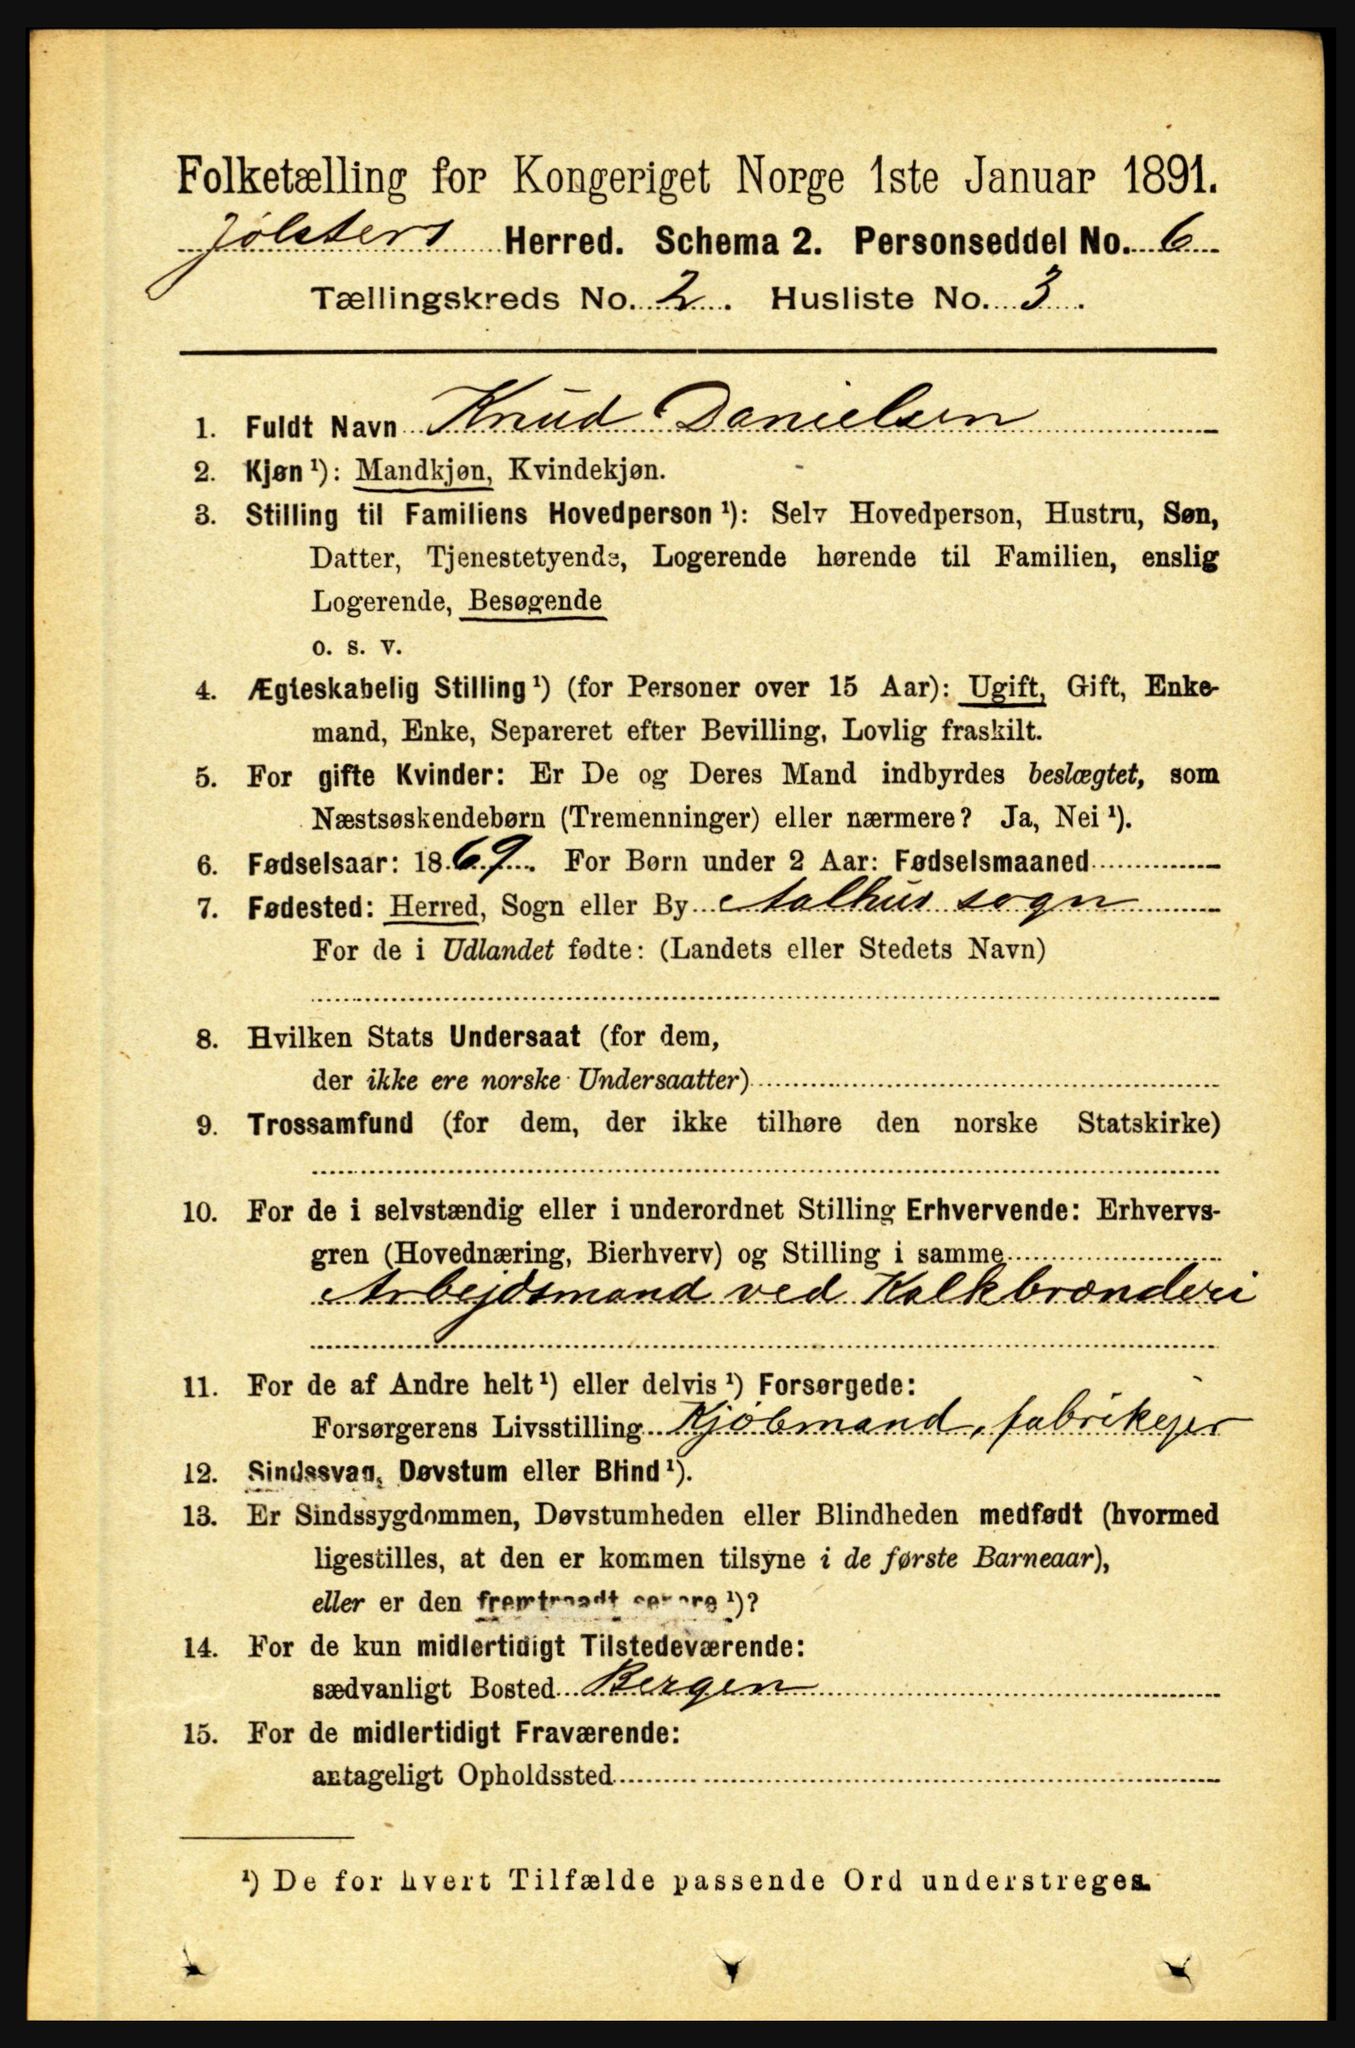 Folketælling for Kongeriget Norge 1ste Januar 1891.
Jølsters Herred. Schema 2. Personseddel No. 6
Tællingskreds No. 2. Husliste No. 3.
1. Fuldt Navn Knud Danielsen
2. Kjøn¹): Mandkjøn, Kvindekjøn.
3. Stilling til Familiens Hovedperson¹): Selv Hovedperson, Hustru, Søn,
Datter, Tjenestetyende, Logerende hørende til Familien, enslig
Logerende, Besøgende
o. s. v.
4. Ægteskabelig Stilling¹) (for Personer over 15 Aar): Ugift, Gift, Enke-
mand, Enke, Separeret efter Bevilling, Lovlig fraskilt.
5. For gifte Kvinder: Er De og Deres Mand indbyrdes beslægtet, som
Næstsøskendebørn (Tremenninger) eller nærmere? Ja, Nei¹).
6. Fødselsaar: 1869. For Børn under 2 Aar: Fødselsmaaned
7. Fødested: Herred, Sogn eller By Aalhus sogn
For de i Udlandet fødte: (Landets eller Stedets Navn)
8. Hvilken Stats Undersaat (for dem,
der ikke ere norske Undersaatter)
9. Trossamfund (for dem, der ikke tilhøre den norske Statskirke)
10. For de i selvstændig eller i underordnet Stilling Erhvervende: Erhvervs-
gren (Hovednæring, Bierhverv) og Stilling i samme
Arbejdsmand ved Kalkbrænderi
11. For de af Andre helt¹) eller delvis¹) Forsørgede:
Forsørgerens Livsstilling Kjöbmand, fabrikejer
12. Sindssvag, Døvstum eller Blind¹).
13. Er Sindssygdommen, Døvstumheden eller Blindheden medfødt (hvormed
ligestilles, at den er kommen tilsyne i de første Barneaar),
eller er den fremtraadt senere¹)?
14. For de kun midlertidigt Tilstedeværende:
sædvanligt Bosted Bergen
15. For de midlertidigt Fraværende:
antageligt Opholdssted
¹) De for hvert Tilfælde passende Ord understreges.